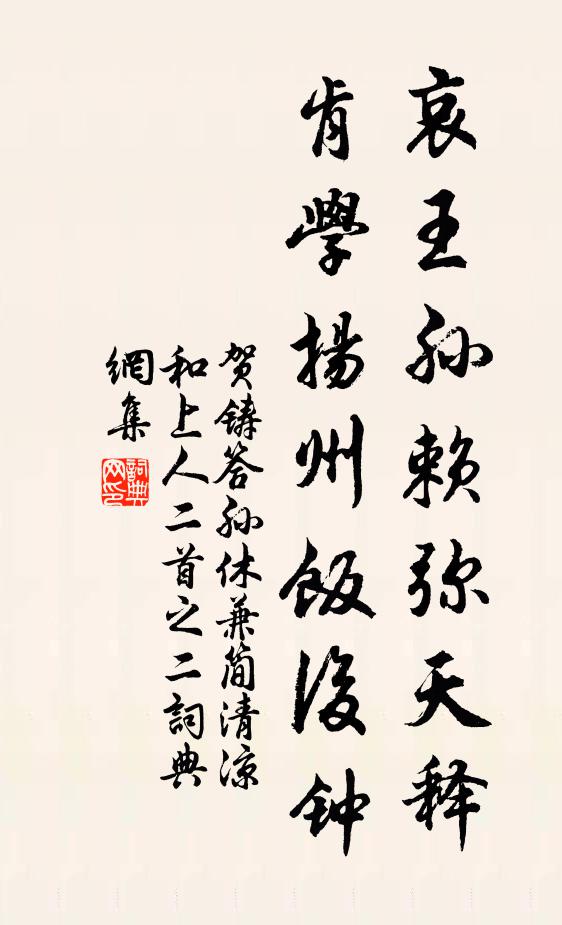 哀王孙赖弥天释
肯學揚州飯後钟
贺铸答孙休兼简清凉
和上人二首之二詞典
網集
詞典
网印